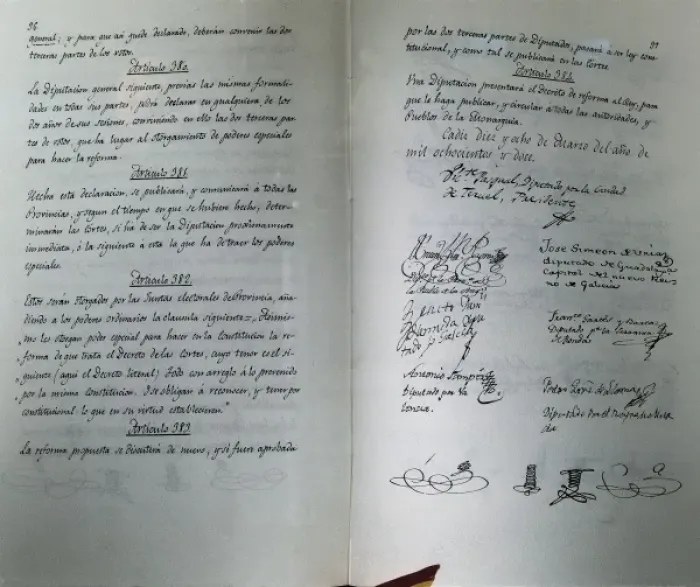 96
general; y para que así quede declarado, deberán convenir las dos
terceras partes de los votos.
Artículo 380.
La Diputacion general siguiente, previas las mismas formali-
dades en todas sus partes, podrá declarar en qualquiera de los
dos años de sus sesiones, conviniendo en ello las dos terceras par-
tes de votos, que ha lugar al otorgamiento de poderes especiales
para hacer la reforma.
Artículo 381.
Hecha esta declaracion, se publicará, y comunicará á todas las
Provincias, y segun el tiempo en que se hubiere hecho, deter-
minarán las Córtes, si ha de ser la Diputacion proximamente
inmediata, ó la siguiente á esta la que ha de traer los poderes
especiales.
Artículo 382.
Estos serán otorgados por las Juntas electorales de Provincia, aña-
diendo á los poderes ordinarios la clausula siguiente =
mo les otorgan poder especial para hacer en la Constitucion la re-
forma de que trata el Decreto de las Córtes, cuyo tenor es el si-
guiente (aqui el Decreto literal) Todo con arreglo á lo prevenido
por la misma constitucion. I se obligan á reconocer, y tener por
constitucional lo que en su virtud establecieren."
Artículo 383.
La reforma propuesta se discutirá de nuevo, y si fuere aprobada
97
por las dos terceras partes de Diputados, pasará á ser ley cons-
titucional, y como tal se publicará en las Córtes.
Artículo 384.
Una Diputacion presentará el decreto de reforma al Rey, para
que le haga publicar, y circular á todas las autoridades, y
Pueblos de la Monarquia.
Cadiz diez y ocho de Marzo del año de
mil ochocientos y doce.
Vicente Pasqual, Diputado por la Ciudad
de Teruel, Presidente
Antonio
Diputado por Va
lencia.
Jose Simeon de Uria
diputado de Guadalaxara
Capital del nuevo Rei-
no de Galicia
Diputado
de Ronda
Pedro
Diputado por